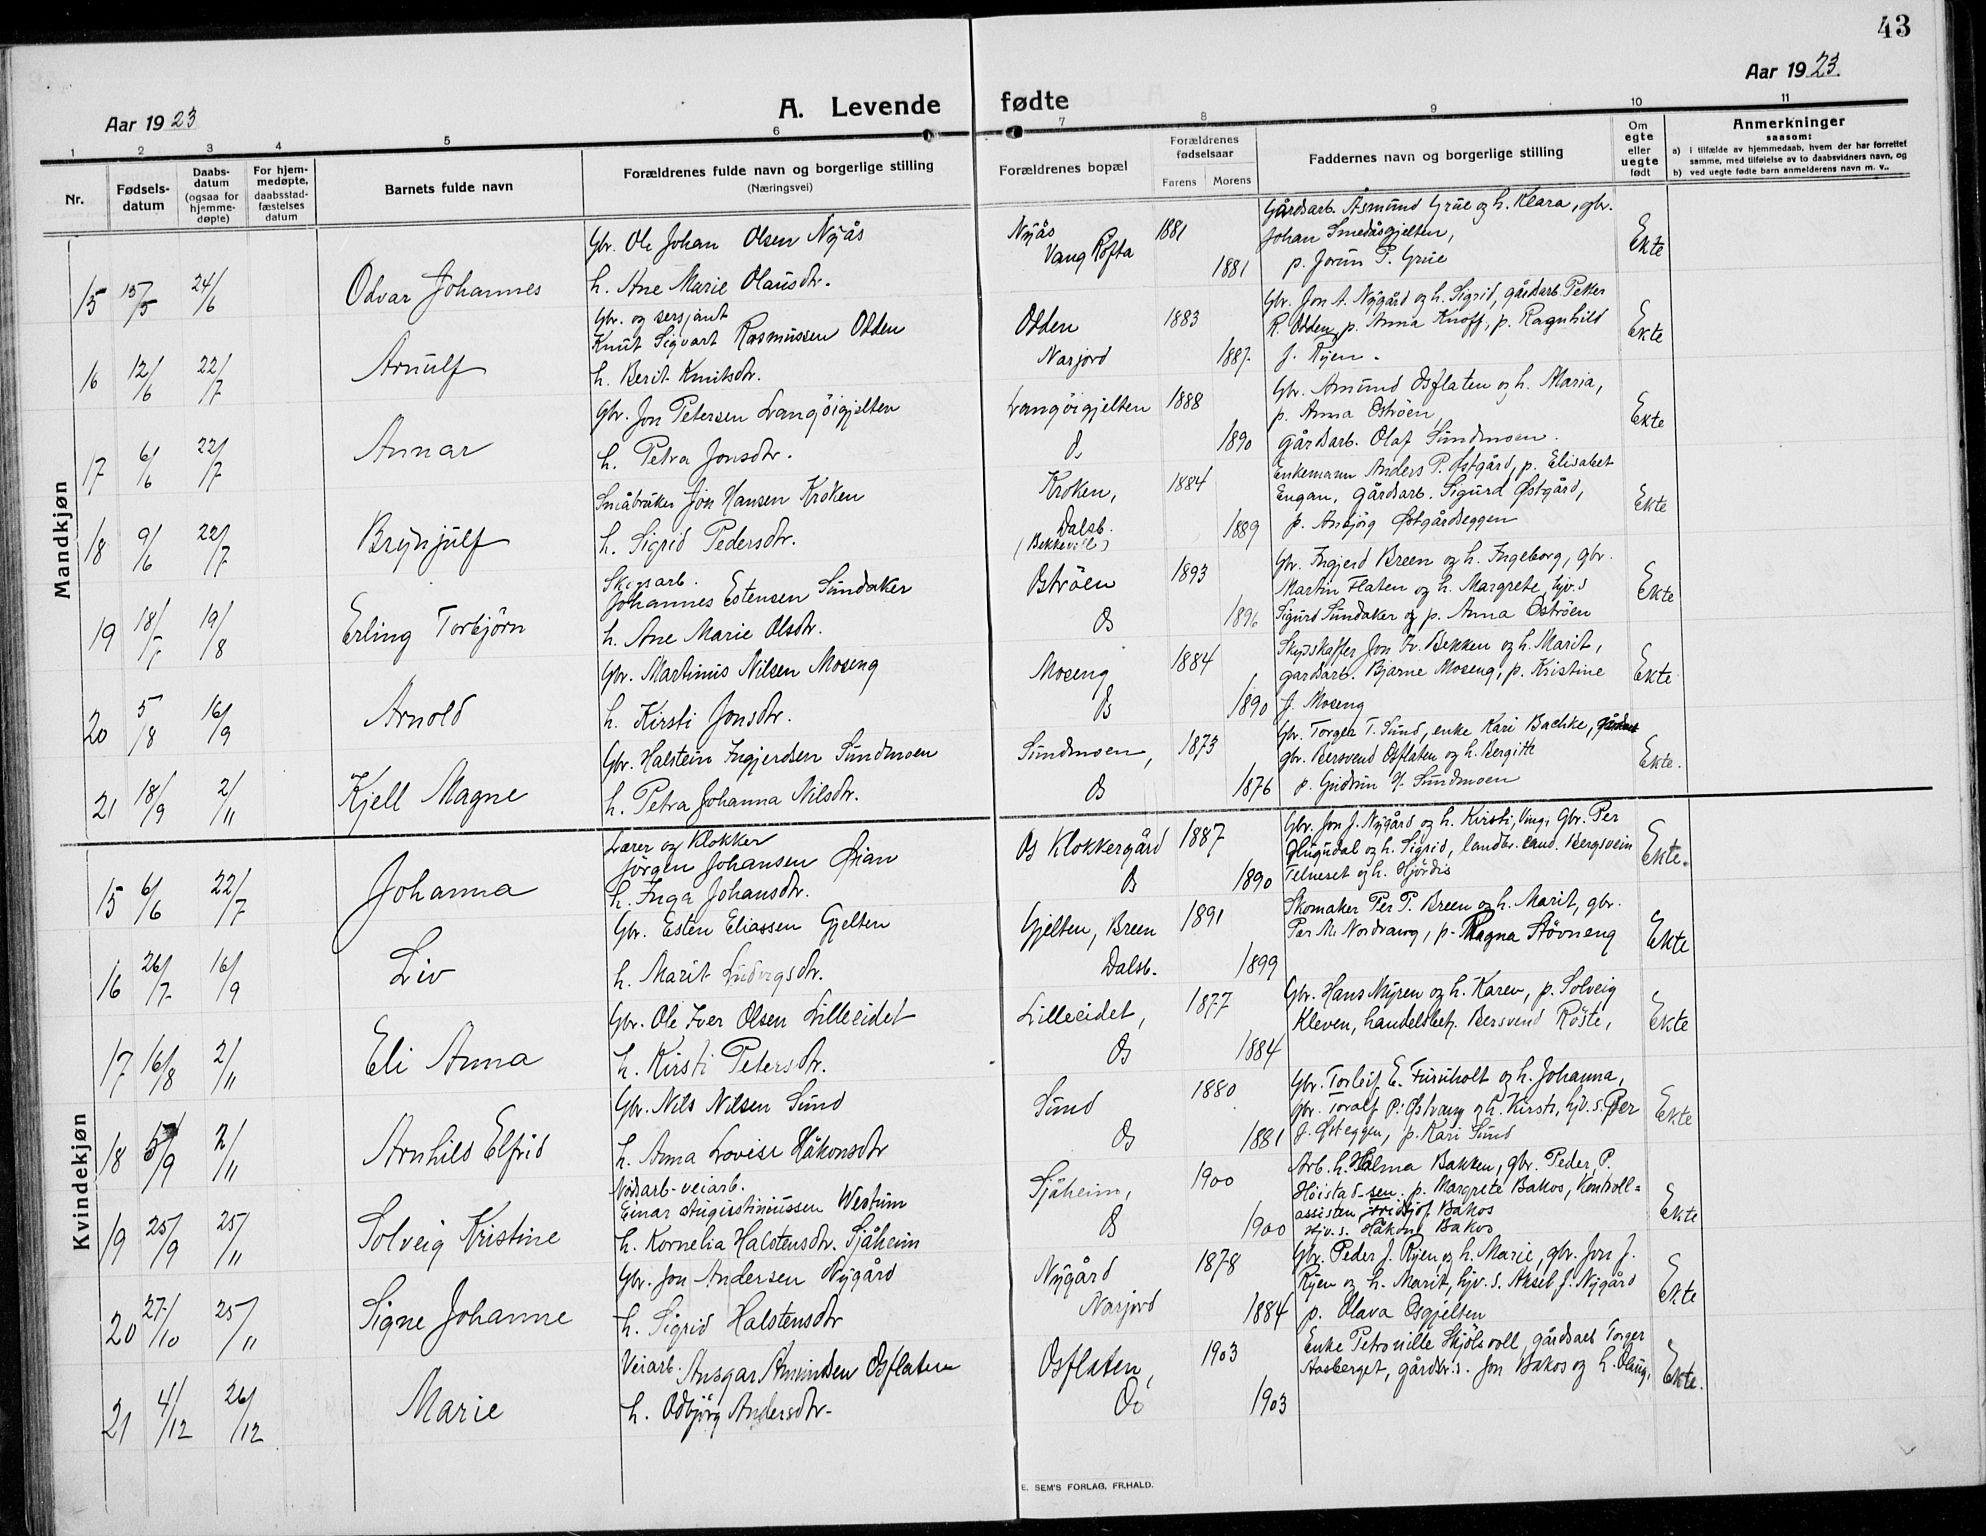 43
Aar 1923
A. Levende fødte
Aar 1923
1 2 3 4 5 6 7 8 9 10 11
Nr.
Fødsels-
datum
Daabs-
datum
(ogsaa for
hjemme-
døpte)
For hjem-
medøpte,
daabsstad-
fæstelses
datum
Barnets fulde navn
Forældrenes fulde navn og borgerlige stilling
(Næringsvei)
Forældrenes bopæl
Forældrenes
fødselsaar
Farens Morens
Faddernes navn og borgerlige stilling
Om
egte
eller
uegte
født
Anmerkninger
saasom:
a) i tilfælde av hjemmedaab, hvem der har forrettet
samme, med tilføielse av to daabsvidners navn, og
b) ved uegte fødte barn anmelderens navn m. v..
Mandkjøn
15 15/5 24/6 Odvar Johannes
Gbr. Ole Johan Olsen Nyås
h. Ane Marie Olausdtr.
Nyås
Vang Røfta
1881
1881
Gårdsarb. Åsmund Grue og h. Klara, gbr.
Johan Smedåsgjelten,
p. Jorun P. Grue
Ekte
16 12/6 22/7 Arnulf
Gbr. og sersjant
Knut Sigvart Rasmussen Odden
h. Berit Knutsdtr.
Odden
Narjord
1883
1887
Gbr. Jon A. Nygård og h. Sigrid, gårdsarb. Petter
R. Odden, p. Anna Knoff, p. Ragnhild
J. Ryen.
Ekte
17 6/6 22/7 Annar
Gbr. Jon Petersen Langöigjelten
h. Petra Jonsdtr.
Langöigjelten
1888
1890
Gbr. Amund Osflaten og h. Maria,
p. Anna Oströen,
gårdsarb. Olaf Sundmoen.
Ekte
18 9/6 22/7 Brynjulf
Småbruker Jon Hansen Kroken
h. Sigrid Pedersdtr.
Kroken,
Dalsb.
1884
1889
Enkemann Anders P. Østgård, p. Elisabet
Engan, gårdsarb. Sigurd Østgård,
p. Anbjörg Østgårdseggen
Ekte
19 18/7 19/8 Erling Torbjörn
Skogsarb.
Johannes Estensen Sundaker
h. Ane Marie Olsdtr.
Oströen
Os
1893
1896
Gbr. Ingjerd Breen og h. Ingeborg, gbr.
Martin Flaten og h. Margrete, hjv. s
Sigurd Sundaker og p. Anna Oströen
Ekte
20 5/8 16/9 Arnold
Gbr. Martinus Nilsen Moseng
h. Kirsti Jonsdtr.
Moseng
Os
1884
1890
Skysskaffer Jon Iv. Bekken og h. Marit,
gårdsarb. Bjarne Moseng, p. Kristine
J. Moseng
Ekte
21 18/9 2/11 Kjell Magne
Gbr. Halstein Ingjerdsen Sundmoen
h. Petra Johanna Nilsdtr.
Sundmoen,
Os
1873
1876
Gbr. Torger T. Sund, enke Kari Bachke,
gbr. Bersvend Osflaten og h. Bergitte
p. Gudrun H. Sundmoen
Ekte.
Kvindekjøn
15 6/6 22/7 Johanna
Lærer og Klokker
Jörgen Johansen Øian
h. Inga Johansdtr.
Os Klokkergård
Os
1887
1890
Gbr. Jon J. Nygård og h. Kirsti, Ung. Gbr. Per
og h. Sigrid, landbr. cand. Bergsvein
Telneset og h. Hjördis
Ekte.
16 26/7 16/9 Liv
Gbr. Esten Eliassen Gjelten
h. Marit Ludvigsdtr.
Gjelten, Breen
Dalsb.
1891
1899
Skomaker Per P. Breen og h. Marit, gbr.
Per M. Nordvang, p. Magna Stövneng
Ekte
17 16/8 2/11 Eli Anna
Gbr. Ole Iver Olsen Lilleeidet
h. Kirsti Petersdtr.
Lilleeidet,
Os
1877
1884
Gbr. Hans Myren og h. Karen, p. Solveig
Kleven, handelsbetj. Bersvend Röste,
Ekte
18 5/9 2/11 Arnhild Elfrid
Gbr. Nils Nilsen Sund
h. Anna Lovise Håkonsdtr
Sund
Os
1880
1881
Gbr. Torleif E. Furuholt og h. Johanna,
gbr. Toralf P. Østvang og h. Kirsti, hjv. s. Per
J. Østeggen, p. Kari Sund
Ekte
19 25/9 25/11 Solveig Kristine
Nödsarb.-veiarb.
Einar Augustinussen Westum
h. Kornelia Halstensdtr. Sjåheim
Sjåheim,
Os
1900
1900
Arb. h. Halma Bakken, gbr. Peder P.
Höistad sen. p. Margrete Bakos, Kontroll=
assistent Fridtjof Bakos
Hjv. s. Håkon Bakos
Ekte
20 27/10 25/11 Signe Johanne
Gbr. Jon Andersen Nygård
h. Sigrid Halstensdtr
Nygård
Narjord
1878
1884
Gbr. Peder J. Ryen og h. Marie, gbr. Jon J.
Ryen og h. Marit, hjv. s. Aksel J. Nygård
p. Olava Osgjelten
Ekte
21 4/12 26/12 Marie
Veiarb. Ansgar Amundsen Osflaten
h. Odbjörg Andersdtr.
Osflaten,
Os
1903
1903
Enke Petronille Skjölsvoll, gårdsarb Torger
Aasberget, gårdbr. s. Jon Bakos og h. Oloug.
Ekte.
E. SEM'S FORLAG, FR.HALD.